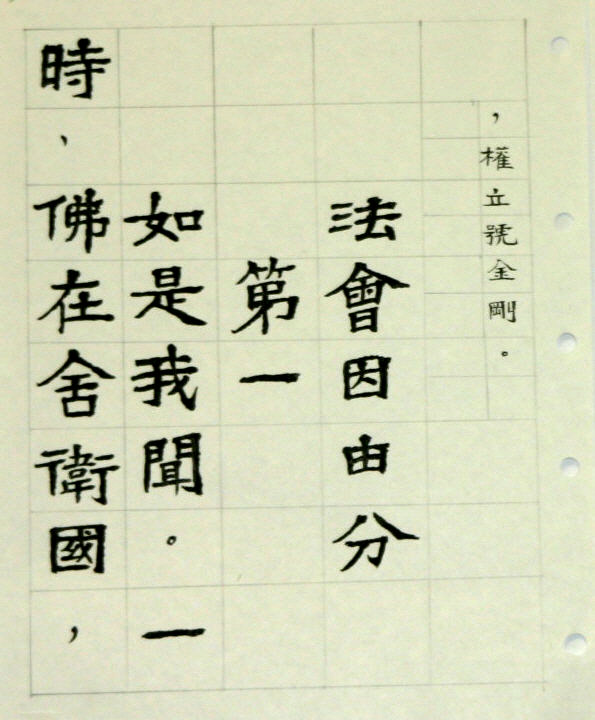 ，權立號金剛。
法會因由分
第一
如是我聞。一
時，佛在舍衛國，